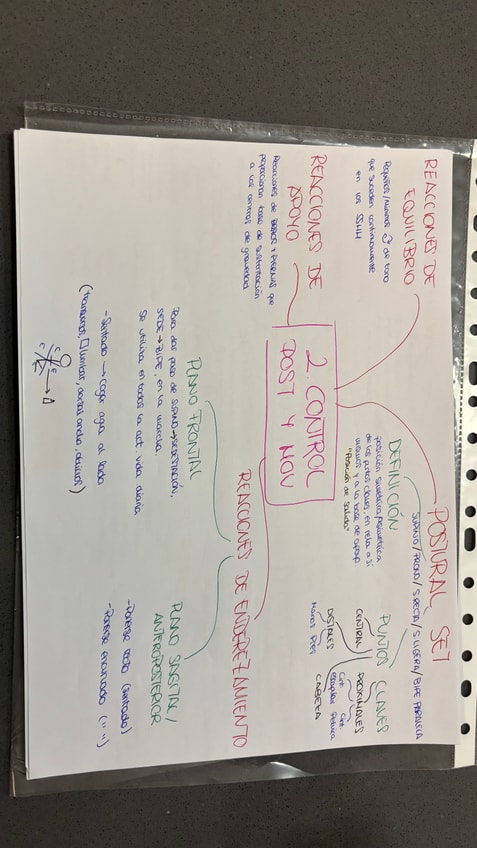 POSTURAL SET
SUPINO / PRONO / S. RECTA / S. LIGERA / BIPE PARALELA
DEFINICIÓN
posición simétrica/asimétrica
de los puntos claves, en rela. a sí
mismos y a la base de apoyo
"Posición de salida"
PUNTOS CLAVES
CENTRAL
PROXIMALES
Cint. Escapular
Cint. Pélvica
DISTALES
Manos Pies
CABEZA
REACCIONES DE
EQUILIBRIO
Pequeños/Mínimos de tono
que suceden continuamente
en los SSHH
2 CONTROL
POST Y MOV
REACCIONES DE
APOYO
Reacciones de BRAZOS + PIERNAS que
proporcionan base de sustentación
a los centros de gravedad
REACCIONES DE ENDEREZAMIENTO
PLANO FRONTAL
Para dar paso de SUPINO → SEDESTACIÓN,
SEDE → BIPE, en la marcha
Se utiliza en todas la act vida diaria
- Sentado → coger agua al lado
(transferencias, lumbar, dorsal ancho, abdomen)
C E
C
PLANO SAGITAL /
ANTEROPOSTERIOR
- Ponerse recto (sentado)
- Ponerse encorvado (" ")